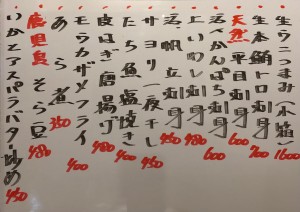 生ウニつまみ(小箱) 1600
生本鮪トロ刺身 1000
天然平目刺身 600
刺身 600
いわし刺身 480
活帆立刺身 450
サヨリ一夜干し 450
〃 (塩焼き) 400
皮はぎ唐揚げ 480
モウカザメフライ 400
あら煮 350
そら豆 480
いかとアスパラバター炒め 450